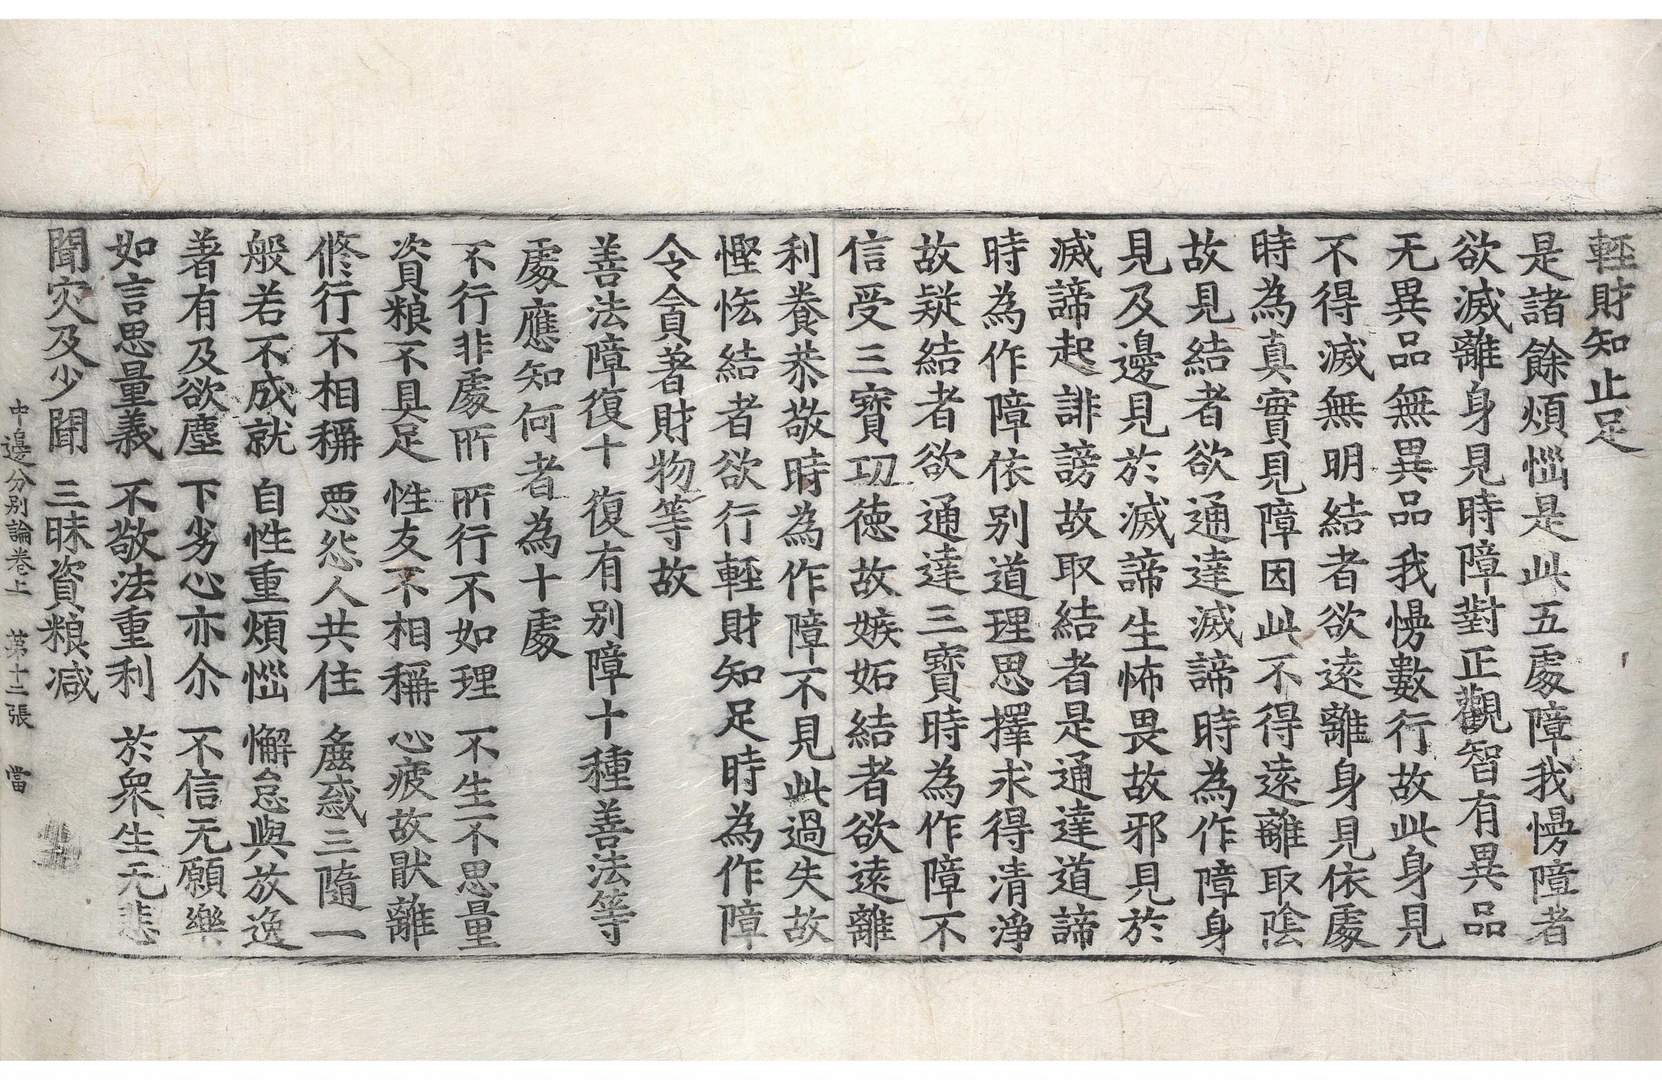 輕財知止足
是諸餘煩惱是此五處障我慢障者
欲滅離身見時障對正觀智有異品
无異品無異品我慢數行故此身見
不得滅無明結者欲遠離身見依處
時為真實見障因此不得遠離取陰
故見結者欲通達滅諦時為作障身
見及邊見於滅諦生怖畏故邪見於
滅諦起誹謗故取結者是通達道諦
時為作障依別道理思擇求得清淨
故疑結者欲通達三寶時為作障不
信受三寶功德故嫉妬結者欲遠離
利養恭敬時為作障不見此過失故
慳悋結者欲行輕財知足時為作障
令貪著財物等故
善法障復十　復有別障十種善法等
處應知何者為十處
不行非處所　所行不如理　不生不思量
資粮不具足　性友不相稱　心疲故猒離
修行不相稱　惡怨人共住　麁惑三隨一
般若不成就　自性重煩惱　懈怠與放逸
著有及欲塵　下劣心亦尒　不信无願樂
如言思量義　不敬法重利　於衆生无悲
聞灾及少聞　三昧資粮減
中邊分別論卷上　第十二張　當